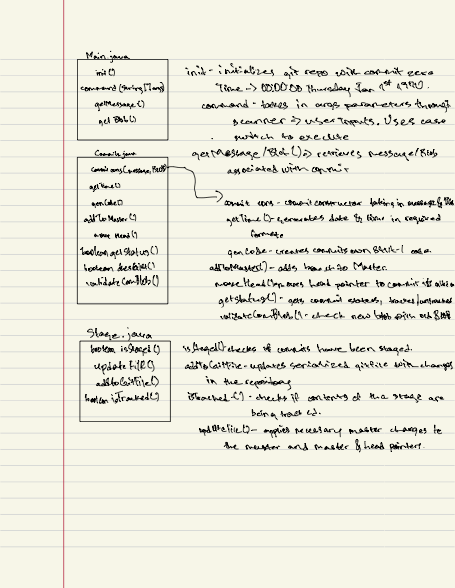 Main.java
init()
command(String[] args)
getMessage()
get Blob()
init - initializes git repo with commit zero
Time -> 00:00:00 Thursday Jan 1st 1970.
command - takes in args parameters through
scanner => user inputs. Uses case
switch to execute
getMessage/Blob() => retrieves message/Blob
associated with commit
Commit.java
commit cons(message, Blob)
getTime()
genCode()
addToMaster()
move Head()
boolean getStatus()
boolean
validateComBlob()
commit cons - commit constructor taking in message &
getTime() - generates date & time in required
formate
genCode - creates commits own SHA-1 code.
addToMaster() - adds to Master
moveHead() moves head pointer to commit
getstatus() - gets commit status, tracked/untracked
validateComBlob() - check new blob with old Blob
Stage.java
boolean isStaged()
update File()
addtoGitFile()
boolean isTracked()
isStaged() - checks if commits have been staged.
addtoGitFile - updates serialized gitfile with changes
in the repository
isTracked-() - checks if contents of the stage are
being tracked.
updateFile() - applies necessary master changes to
the master and master & head pointers.